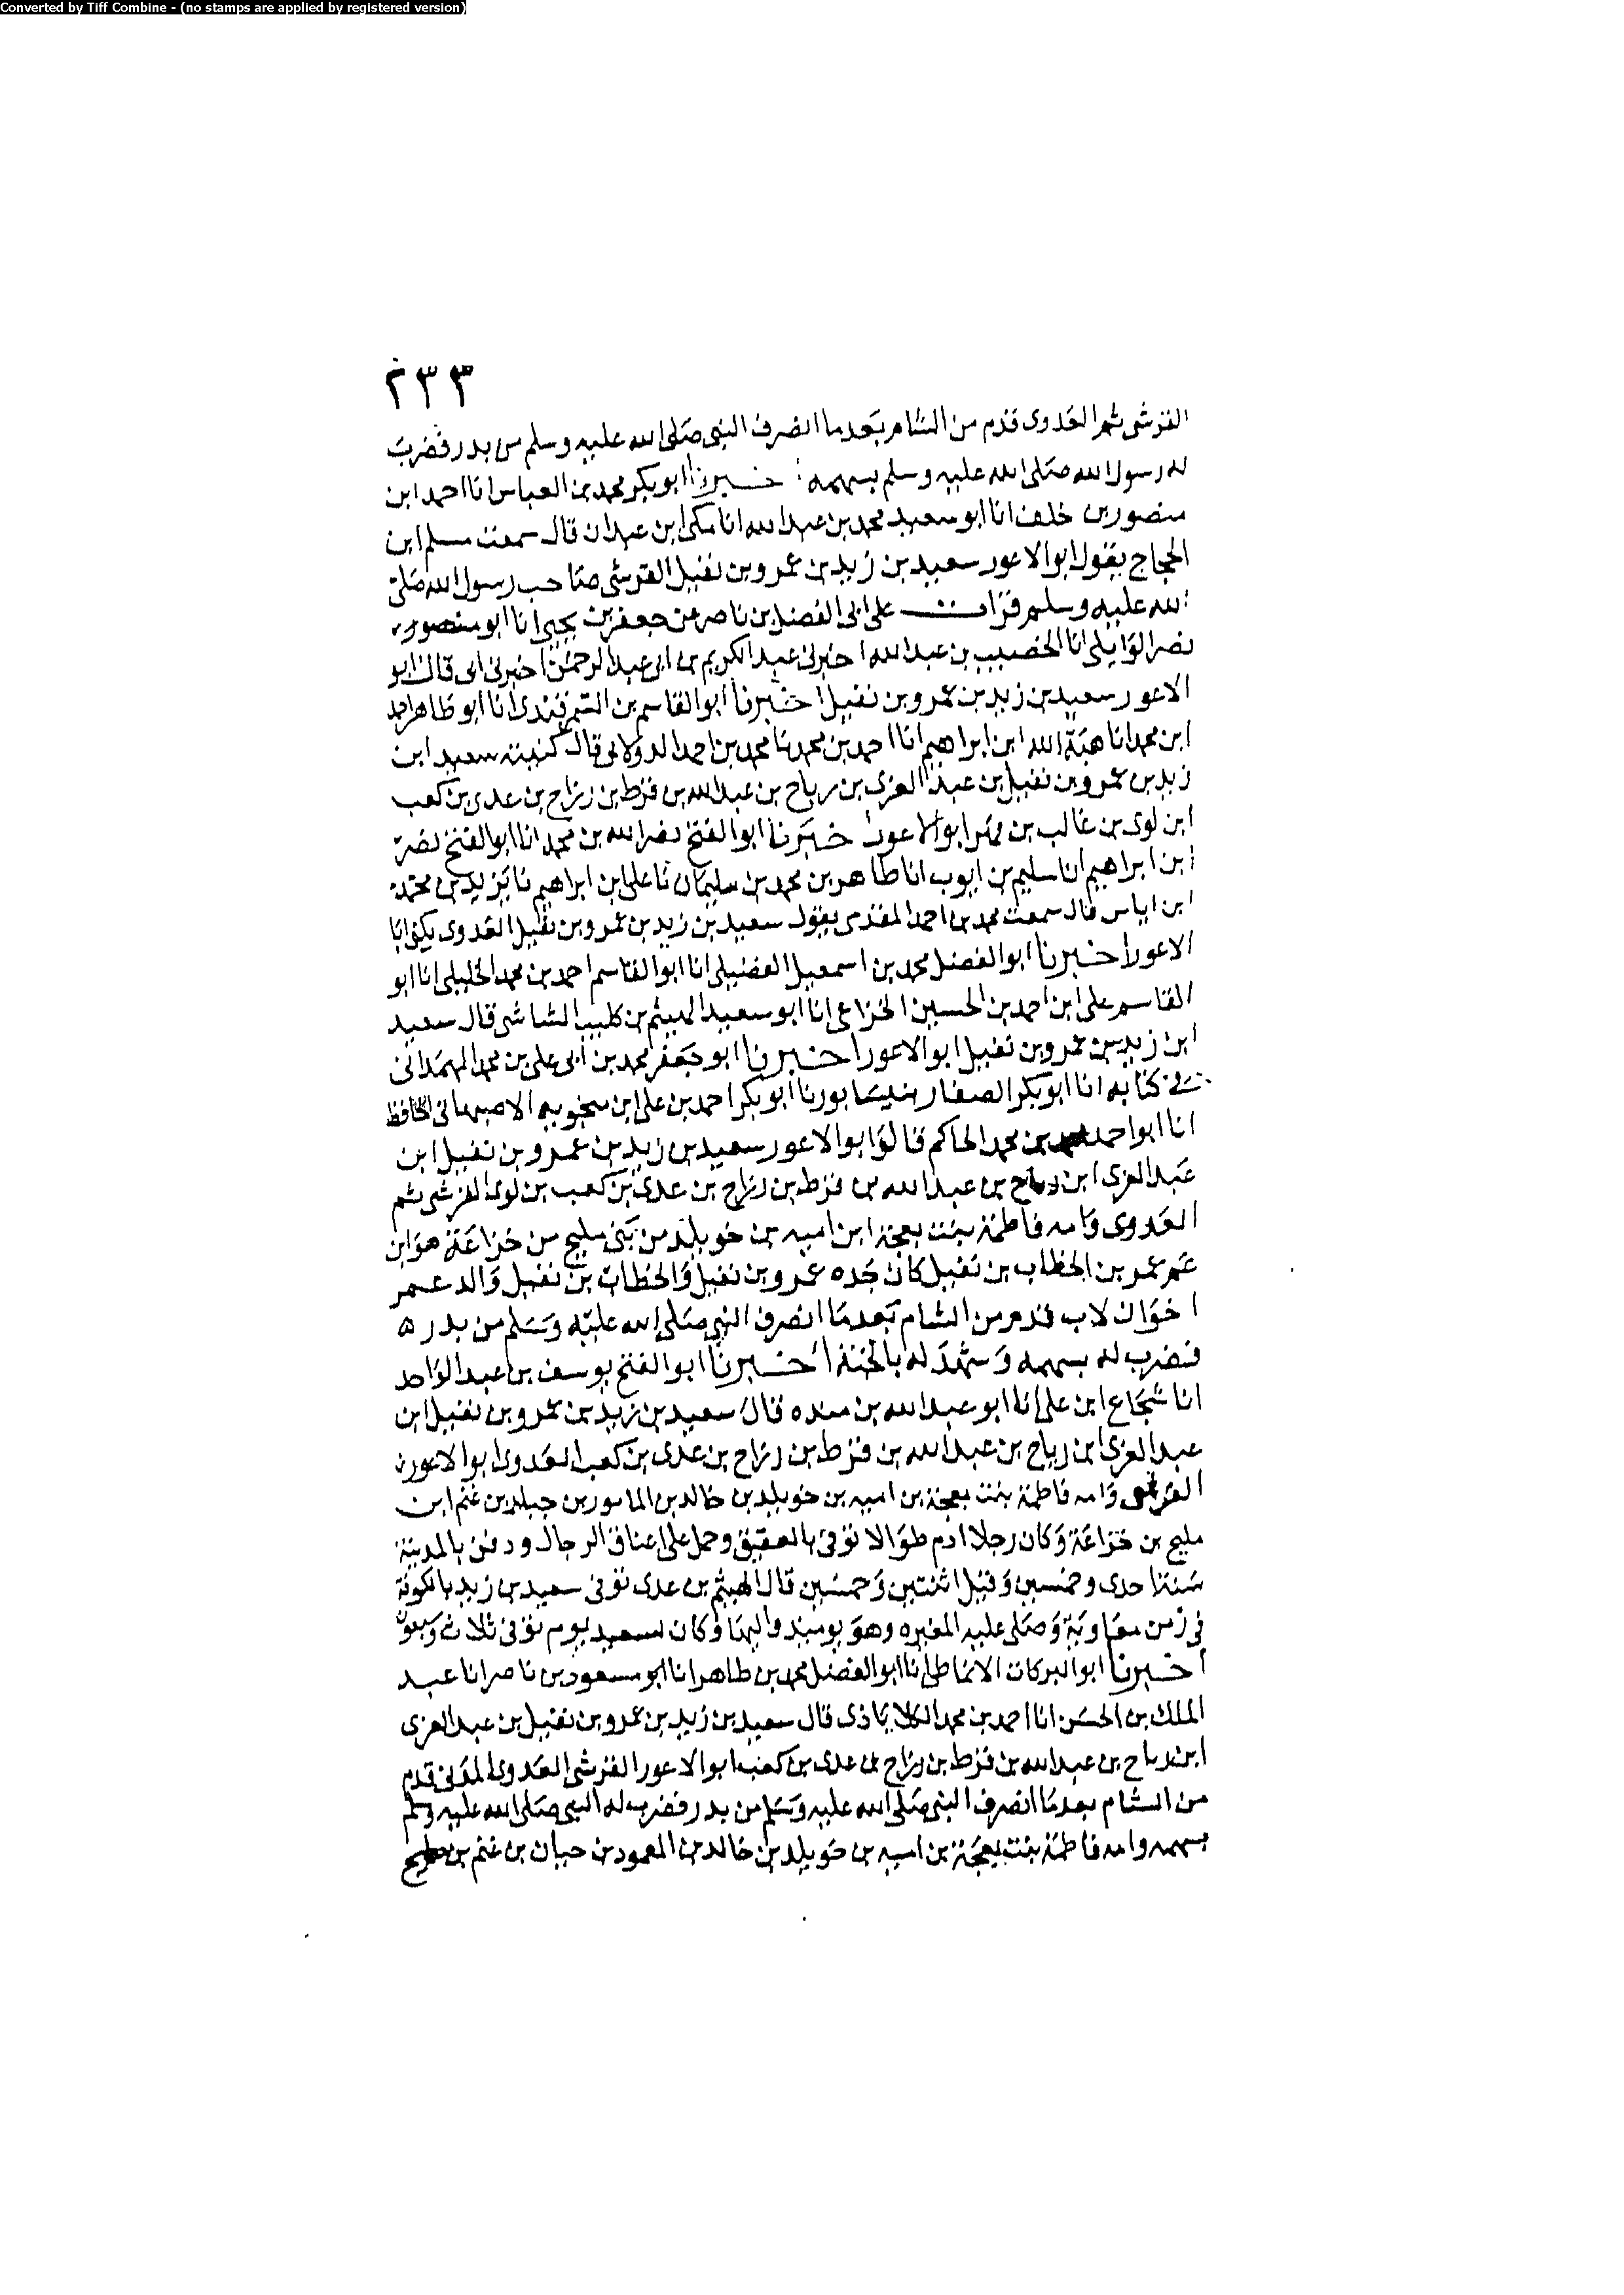 Converted by Tiff Combine - (no stamps are applied by registered version)
٢٣٣
القرشى ثم العدوى قدم من الشام بعد ما انصرف النبى صلى الله عليه وسلم من بدر فضرب
له رسول الله صلى الله عليه وسلم بسهمه اخبرنا ابو بكر محمد بن العباس انا احمد ابن
منصور بن خلف انا ابو سعيد محمد بن عبد الله انا مكى ابن عبدان قال سمعت مسلم ابن
الحجاج يقول ابو الاعور سعيد بن زيد بن عمرو بن نفيل القرشى صاحب رسول الله صلى
الله عليه وسلم قرات على ابى الفضل بن ناصر عن جعفر بن يحيى انا ابو منصور
نصر الوايلى انا الخصيب بن عبد الله اخبرنى عبد الكريم بن ابى عبد الرحمن اخبرنى ابى قال ابو
الاعور سعيد بن زيد بن عمرو بن نفيل اخبرنا ابو القاسم بن السمرقندى انا ابو طاهر احمد
ابن محمد انا هبة الله ابن ابراهيم انا احمد بن محمد نا محمد بن احمد الدولابى قال كنيته سعيد ابن
زيد بن عمرو بن نفيل بن عبد العزى بن رياح بن عبد الله بن قرط بن رزاح بن عدى بن كعب
ابن لوى بن غالب بن فهر ابو الاعور اخبرنا ابو الفتح نصر الله بن محمد انا ابو الفتح نصر
ابن ابراهيم انا سليم بن ايوب انا طاهر بن محمد بن سليمان نا على ابن ابراهيم نا يزيد بن محمد
ابن اياس قال سمعت محمد بن احمد المقدمى يقول سعيد بن زيد بن عمرو بن نفيل العدوى يكنى ابا
الاعور اخبرنا ابو الفضل محمد بن اسمعيل الفضيلى انا ابو القاسم احمد بن محمد الخليلى انا ابو
القاسم على ابن احمد بن الحسين الخزاعى انا ابو سعيد الهيثم بن كليب الشاشى قال سعيد
ابن زيد بن عمرو بن نفيل ابو الاعور اخبرنا ابو جعفر محمد بن ابى على بن محمد الهمدانى
فى كتابه انا ابو بكر الصفار بنيسابور نا ابو بكر احمد بن على ابن منجويه الاصبهانى الحافظ
انا ابو احمد محمد بن محمد الحاكم قالوا ابو الاعور سعيد بن زيد بن عمرو بن نفيل ابن
عبد العزى ابن رياح بن عبد الله بن قرط بن رزاح بن عدى بن كعب بن لوى القرشى ثم
العدوى وامه فاطمة بنت بعجة ابن اميه بن خويلد من بنى مليح من خزاعة هو ابن
عم عمر بن الخطاب بن نفيل كان جده عمرو بن نفيل والخطاب بن نفيل والد عمر
اخوان لاب قدم من الشام بعد ما انصرف النبى صلى الله عليه وسلم من بدر ه
فضرب له بسهمه وشهد له بالجنة اخبرنا ابو الفتح يوسف بن عبد الواحد
انا شجاع ابن على انا ابو عبد الله بن منده قال سعيد بن زيد بن عمرو بن نفيل ابن
عبد العزى ابن رياح بن عبد الله بن قرط بن رزاح بن عدى بن كعب العدوى ابو الاعور
القرشى وامه فاطمة بنت بعجة بن اميه بن خويلد بن خالد بن المامور بن غنم ابن
مليح بن خزاعة وكان رجلا ادم طوالا توفى بالعقيق وحمل على اعناق الرجال ودفن بالمدينة
سنة احدى وخمسين وقيل اثنتين وخمسين قال الهيثم بن عدى توفى سعيد بن زيد بالكوفة
فى زمن معاوية وصلى عليه المغيره وهو يوميذ واليها وكان لسعيد يوم توفى ثلاث وسبعون
اخبرنا ابو البركات الانماطى انا ابو الفضل محمد بن طاهر انا ابو مسعود بن ناصر انا عبد
الملك بن الحسن انا احمد بن محمد الكلاباذى قال سعيد بن زيد بن عمرو بن نفيل بن عبد العزى
ابن رياح بن عبد الله بن قرط بن رزاح بن عدى بن كعب ابو الاعور القرشى العدوى المدنى قدم
من الشام بعد ما انصرف النبى صلى الله عليه وسلم من بدر فضرب له النبى صلى الله عليه وسلم
بسهمه وامه فاطمة بنت بعجة بن اميه بن خويلد بن خالد بن المعمود بن حيان بن غنم بن مليح